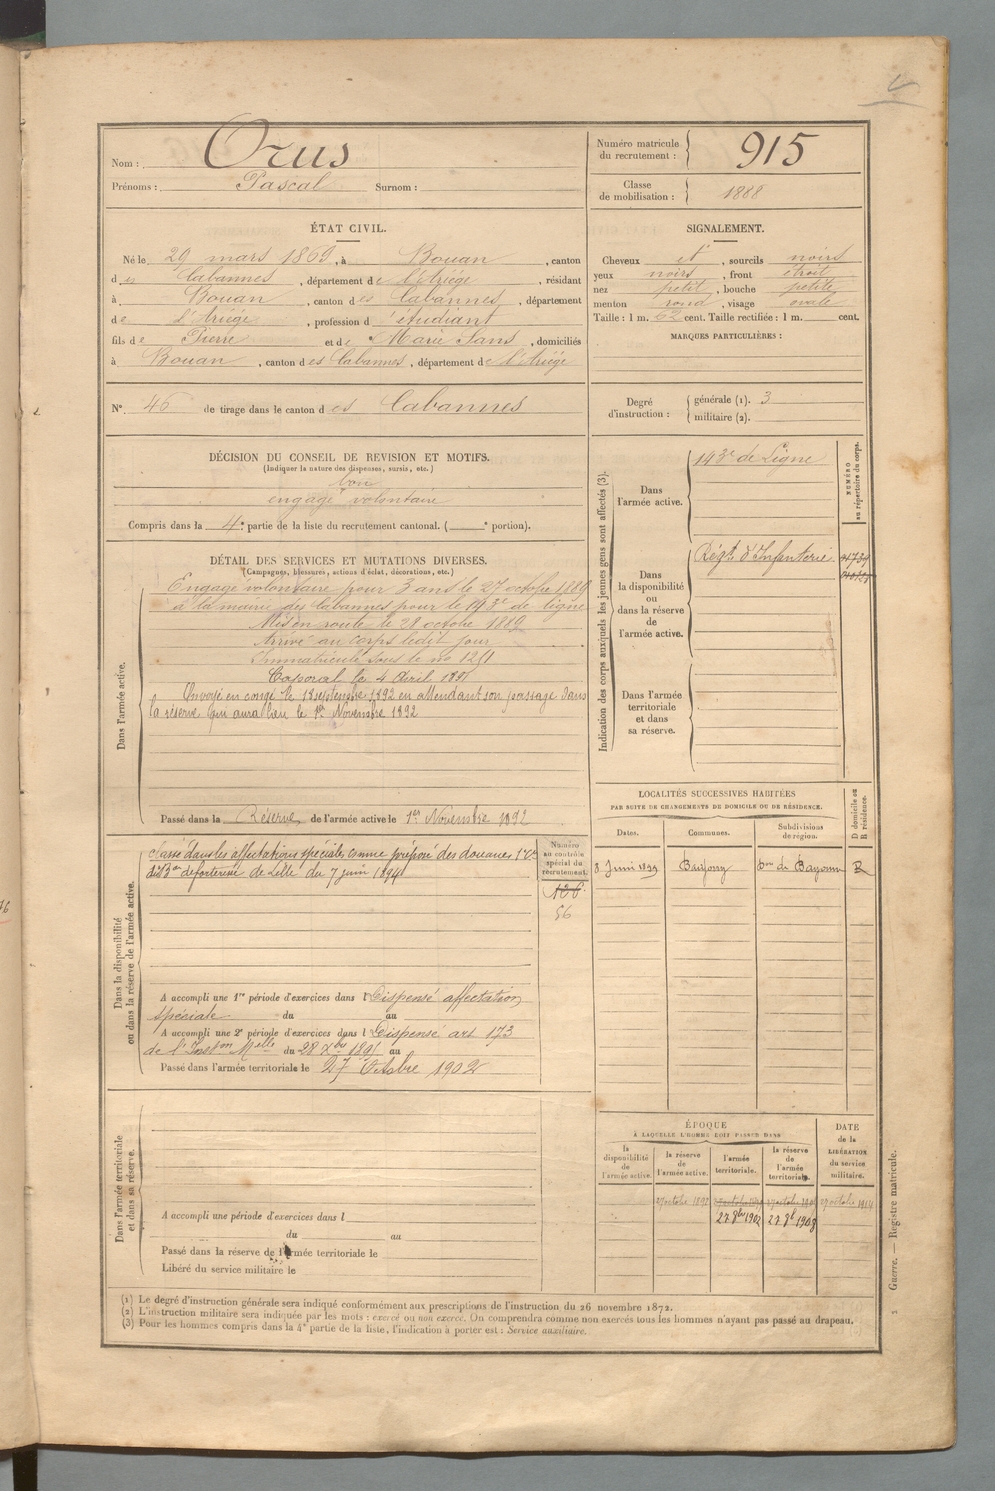 Nom : Orus
Prénoms : Pascal Surnom :
Numéro matricule du recrutement : 915
Classe de mobilisation : 1888
ÉTAT CIVIL.
Né le 29 mars 1869, à Bouan, canton
des Cabannes, département de l'Ariége, résidant
à Bouan, canton des Cabannes, département
de l'Ariége, profession d'étudiant
fils de Pierre et de Marie Sans, domiciliés
à Bouan, canton des Cabannes, département de l'Ariége
SIGNALEMENT.
Cheveux et, sourcils noirs
yeux noirs, front étroit
nez petit, bouche petite
menton rond, visage ovale
Taille : 1 m. 62 cent. Taille rectifiée : 1 m. cent.
MARQUES PARTICULIÈRES :
N° 46 de tirage dans le canton des Cabannes
Degré d'instruction : générale (1). 3
militaire (2).
DÉCISION DU CONSEIL DE REVISION ET MOTIFS.
(Indiquer la nature des dispenses, sursis, etc.)
bon
engagé volontaire
Compris dans la 4e partie de la liste du recrutement cantonal. ( e portion).
DÉTAIL DES SERVICES ET MUTATIONS DIVERSES.
(Campagnes, blessures, actions d'éclat, décorations, etc.)
Dans l'armée active.
Engagé volontaire pour 3 ans le 27 octobre 1889
à la mairie des Cabannes pour le 143e de ligne
Mis en route le 28 octobre 1889
Arrivé au corps ledit jour
Immatriculé sous le no
Caporal le 4 avril
Envoyé en congé le 18 septembre 1892 en attendant son passage dans
la réserve qui aura lieu le 1er Novembre 1892
Passé dans la Réserve de l'armée active le 1er Novembre 1892
Indication des corps auxquels les jeunes gens sont affectés (3).
NUMÉRO au répertoire du corps.
Dans l'armée active.
143e de Ligne
Dans la disponibilité ou dans la réserve de l'armée active.
Régt. d'Infanterie
Dans l'armée territoriale et dans sa réserve.
LOCALITÉS SUCCESSIVES HABITÉES
PAR SUITE DE CHANGEMENTS DE DOMICILE OU DE RÉSIDENCE.
Dates. Communes. Subdivisions de région. D domicile ou R résidence.
8 Juin de Bayonne R
Dans la disponibilité ou dans la réserve de l'armée active.
Numéro au contrôle spécial du recrutement.
126
56
Classé dans les affectations spéciales comme préposé des douanes
de forteresse de Lille du 7 juin 1894
A accompli une 1re période d'exercices dans l Dispensé affectation
spéciale du au
A accompli une 2e période d'exercices dans l Dispensé art 173
de l'Inston Melle du 28 Xbre 1895 au
Passé dans l'armée territoriale le 27 Octobre 1902
Dans l'armée territoriale et dans sa réserve.
A accompli une période d'exercices dans l
du au
Passé dans la réserve de l'armée territoriale le
Libéré du service militaire le
ÉPOQUE
À LAQUELLE L'HOMME DOIT PASSER DANS
la disponibilité de l'armée active. la réserve de l'armée active. l'armée territoriale. la réserve de l'armée territoriale.
DATE de la LIBÉRATION du service militaire.
27 octobre 1892 27 octobre 1914
27 8bre 1902 27 8bre 1908
(1) Le degré d'instruction générale sera indiqué conformément aux prescriptions de l'instruction du 26 novembre 1872.
(2) L'instruction militaire sera indiquée par les mots : exercé ou non exercé. On comprendra comme non exercés tous les hommes n'ayant pas passé au drapeau.
(3) Pour les hommes compris dans la 4e partie de la liste, l'indication à porter est : Service auxiliaire.
Guerre. — Registre matricule.